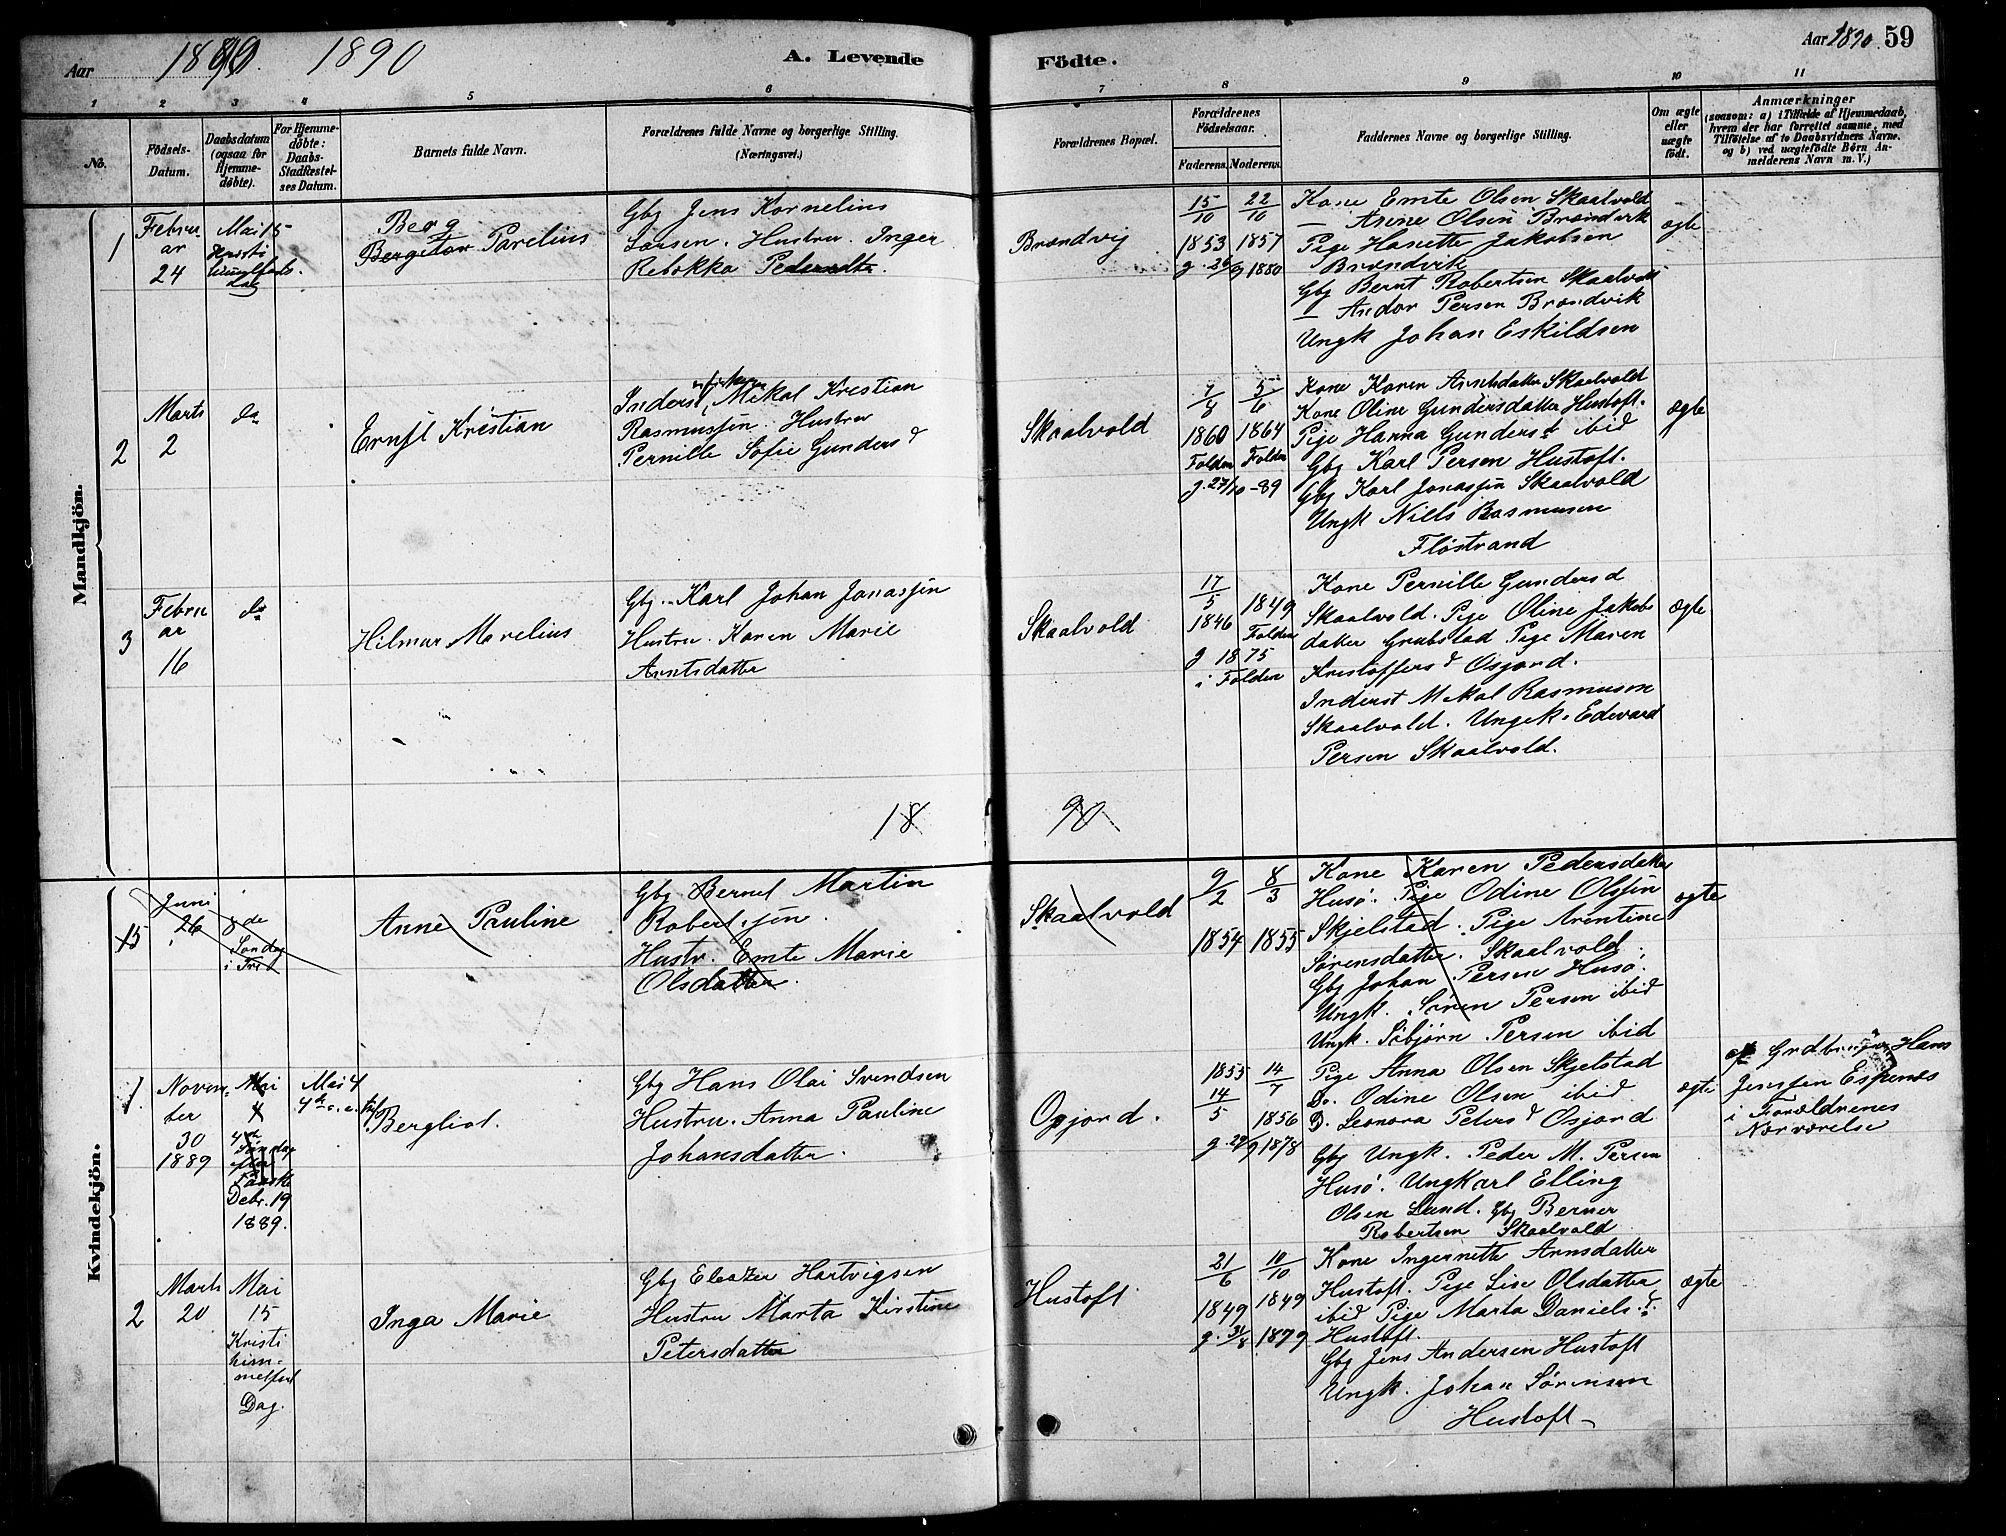 Aar 1890 1890
A. Levende Födte.
Aar 1890 59
1 2 3 4 5 6 7 8 9 10 11
No.
Födsels-Datum.
Daabsdatum (ogsaa for Hjemme-döbte).
For Hjemme-döbte: Daabs-Stadfæstelses Datum.
Barnets fulde Navn.
Forældrenes fulde Navne og borgerlige Stilling. (Næringsvei.)
Forældrenes Bopæl.
Forældrenes Födselsaar.
Faderens. Moderens.
Faddernes Navne og borgerlige Stilling.
Om ægte eller uægte födt.
Anmærkninger
(saasom: a) i Tilfælde af Hjemmedaab, hvem der har forrettet samme, med Tilföielse af to Daabsvidners Navne. og b) ved uægtefödte Börn Anmelderens Navn m. V.)
Mandkjön.
1
Februar 24
Mai 15
Kristi himmelfartsdag
Berg
Bergitor Parelius
Gbg Jens Kornelius
Larsen. Hustru. Inger
Rebekka Pedersdtr.
Brændvig
15/10 1853
22/10 1857
g. 26/9 1880
Kone Emte Olsen Skaalvold
— Asine Olsen Brændvik
Pige Hanette Jakobsen
Brændvik
Gbg Bernt Robertsen Skaalvold
— Andor Persen Brændvik
Ungk Johan Eskildsen
ægte
2
Marts 2
do
Ernst Kristian
Inderst, Mikal Kristian
Rasmussen. Hustru
Pernille Sofie Gunders d
Skaalvold
7/8 1860 Folden
5/6 1864 Folden
g. 27/10 -89
Kone Karen Arntsdatter Skaalvold
Kone Oline Gundersdatter Hustoft.
Pige Hanna Gundersd ibid
Gbg Karl Persen Hustoft.
Gbg Karl Jonassen Skaalvold
Ungk Niels Rasmusen
Flostrand
ægte
3
Februar 16
do
Hilmar Marelius
Gbg. Karl Johan Jonassen
Hustru. Karen Marie
Arntsdatter
Skaalvold
17/5 1846
1849 Folden
g 1875
i Folden
Kone Pernille Gunders d
Skaalvold. Pige Oline Jakobs
datter Grubstad Pige Maren
Kristoffers d Osjord.
Inderst Mikal Rasmusen
Skaalvold. Ungk. Edevard
Persen Skaalvold.
ægte
18 90
Kvindekjön.
15
Juni 26
8de Søndag i Tref
Anne Pauline
Gbg Bernt Martin
Robertsen.
Hustr. Emte Marie
Olsdatter.
Skaalvold
9/2 1854
8/3 1855
Kone Karen Pedersdatter
Husö. Pige Odine Olssen
Skjelstad. Pige Arntine
Sørensdatter. Skaalvold.
Gbg Johan Persen Husö.
Ungk. Sören Persen ibid
Ungk. Söbjörn Persen ibid
ægte
1.
November 30 1889
Mai 4
4de Søndag efter Paaske
Debr. 19
1889.
Mai 4
Bergliot.
Gbg Hans Olai Svendsen
Hustru. Anna Pauline
Johansdatter.
Osjord.
1855 14/5
14/7 1856
g. 29/9 1878
Pige Anna Olsen Skjelstad
Do. Odine Olsen ibid.
D. Leonora Peters d Osjord
Gbg Ungk. Peder M. Persen
Husö. Ungkarl Elling
Olsen Lund. Gbg Berner
Robertsen Skaalvold
ægte
af Grdbruger Hans
Jenssen Espenæs
i Forældrenes
Nærværelse
2
Marts 20
Mai 15
Kristi himmelfart Dag.
Inga Marie
Gbg Eleazer Hartvigsen
Hustru Marta Kirstine
Petersdatter
Hustoft
21/6 1849
10/10 1849
g. 31/8 1879
Kone Ingernette Arnsdatter
Hustoft. Pige Lise Olsdatter
ibid Pige Marta Daniels d.
Hustoft.
Gbg Jens Andersen Hustoft
Ungk. Johan Sørensen
Hustoft
ægte